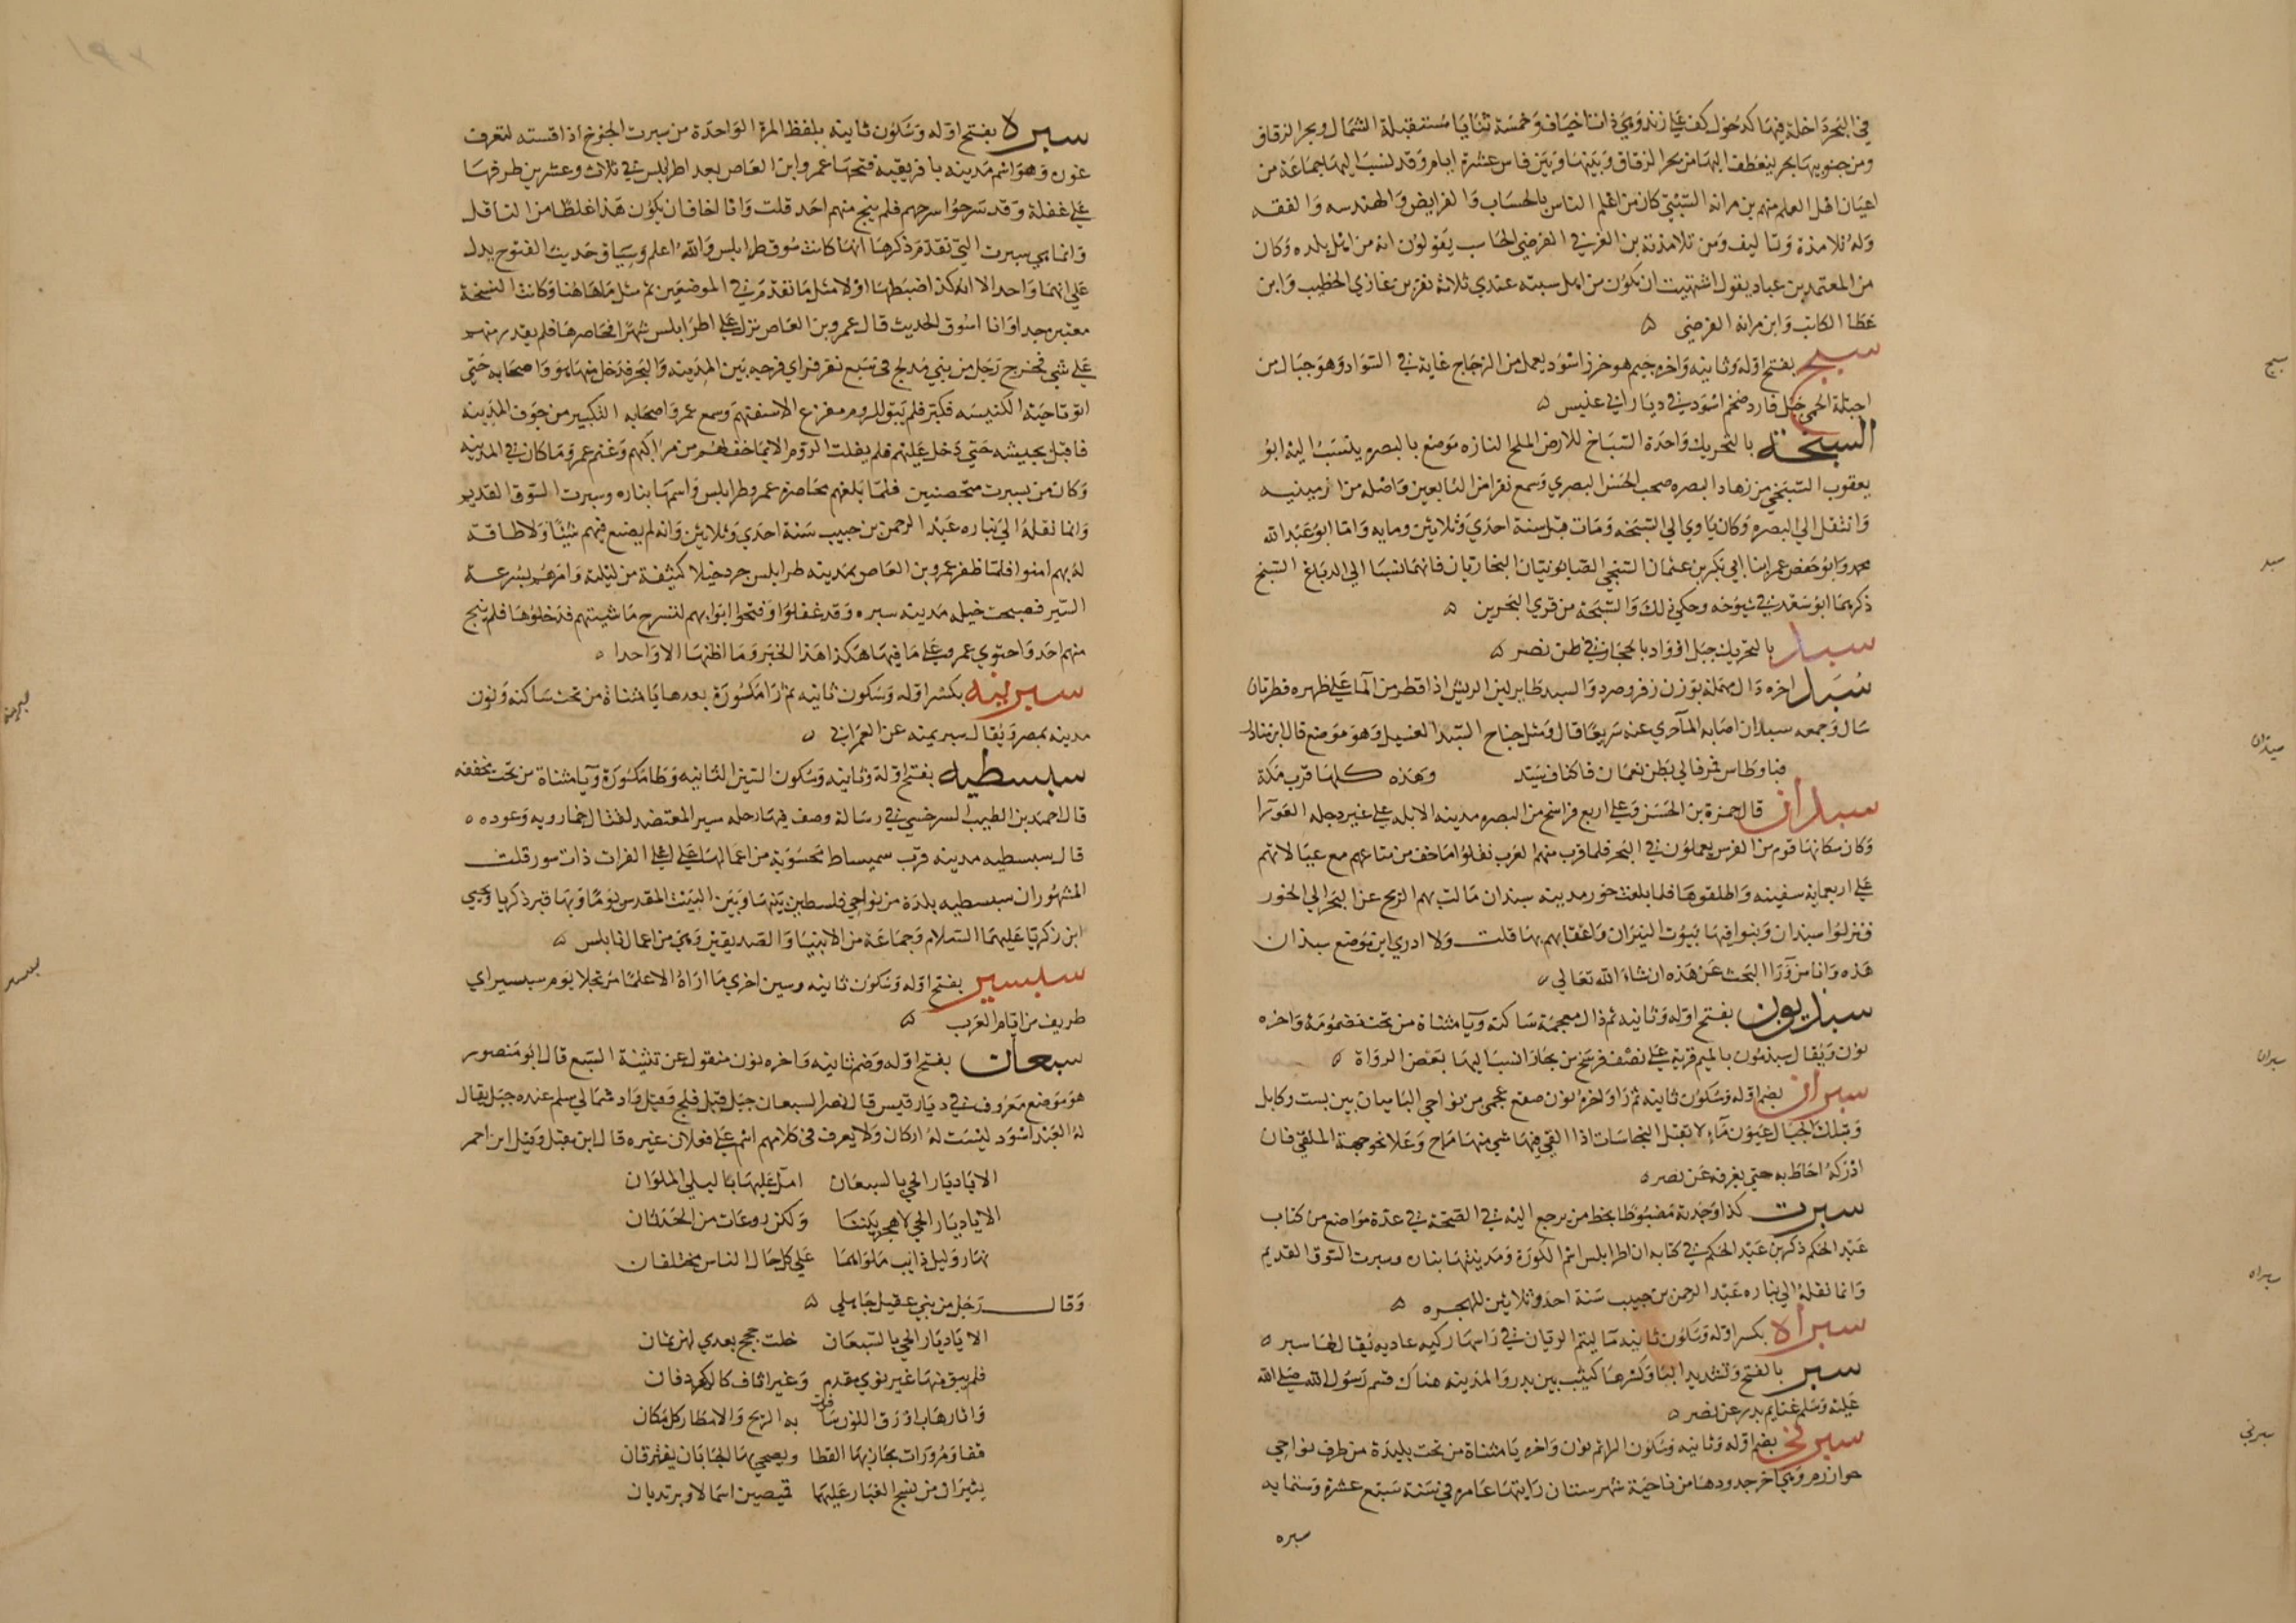 في البحر داخلة فيها كدخول كف علي زند وهي ذات اخياف وخمسة ثنايا مستقبلة الشمال وبحر الزقاق
ومن جنوبيها بحر ينعطف اليها من بحر الزقاق وبينها وبين فاس عشرة ايام وقد نسب اليها جماعة من
اعيان اهل العلم منهم بن مرانه السبتي كان من اعلم الناس بالحساب والفرايض والهندسه والفقه
وله تلامذة وتاليف ومن تلامذته بن العربي الفرضي الحاسب يقولون انه من اهل بلده وكان
من المعتمد بن عباد يقول اشتهيت ان يكون من اهل سبته عندي ثلاثه نفر بن غازي الخطيب وابن
عطا الكاتب وابن مرانه الفرضي ه
سبج بفتح اوله وثانيه واخره جيم هو خرز اسود يعمل من الزجاج غاية في السواد وهو جبال من
اجبلة الحمي جبل فارد ضخم اسود في ديار ابي عنيس ه
السبخة بالتحريك واحدة السباخ للارض الملح النازه موضع بالبصره ينسب اليه ابو
يعقوب السبخي من زهاد البصره صحب الحسن البصري وسمع نفرا من التابعين واصله من ارمينيه
وانتقل الي البصره وكان ياوي الي السبخه ومات قبل سنة احدي وثلاثين ومايه واما ابو عبد الله
محمد وابو حفص عمر ابنا ابي بكر بن عثمان السبخي الصابونيان البخاريان فانهما نسبا الي الدباغ السبخ
ذكرهما ابو سعد في شيوخه وحكي ذلك والسبخة من قري البحرين ه
سبد بالتحريك جبل او واد بالحجاز في ظن نصر ه
سُبَد اخره دال مهملة بوزن زفر وصرد والسبد طاير لين الريش اذا قطر من الما علي ظهره قطرتان
سال وجمعه سبدان اصابه الما جري عنه سريعا قال ومثل جناح السبد الغسيل وهو موضع قال ابن مناذر
فباوطاس فمر فالي بطن نعمان فاكناف سبد وهذه كلها قرب مكة
سبدان قال حمزة بن الحسن وعلي اربع فراسخ من البصره مدينه الابله علي عبر دجله العورا
وكان سكانها قوم من الفرس يعملون في البحر فلما قرب منهم العرب نقلوا ما خف من متاعهم مع عيالاتهم
علي اربعمايه سفينه واطلقوها فلما بلغت خور مدينه سبذان مالت بهم الريح عن البحر الي الخور
فنزلوا سبذان وبنوا فيها بيوت النيران واعقابهم بها قلت ولا ادري اين موضع سبذان
هذه وانا من ورا البحث عن هذه ان شاء الله تعالي ه
سبذيون بفتح اوله وثانيه ثم ذال معجمة ساكنه ويا مثناة من تحت مضمومة واخره
نون ويقال سبذمون بالميم قرية علي نصف فرسخ من بخارا نسب اليها بعض الرواة ه
سبران بضم اوله وسكون ثانيه ثم را واخره نون صقع عجمي من نواحي الباميان بين بست وكابل
وبتلك الجبال عيون ماء لا تقبل النجاسات اذا القي فيها شي منها ماج وغلا نحو جهة الملقي فان
ادركه احاط به حتي يغرقه عن نصر ه
سبرت كذا وجدته مضبوطا بخط من يرجع اليه في الصحة في عدة مواضع من كتاب
عبد الحكم ذكر بن عبد الحكم في كتابه ان اطرابلس اسم الكورة ومدينتها بناره وسبرت السوق القديم
وانما نقله الي نباره عبد الرحمن بن حبيب سنة احد وثلاثين للهجره ه
سبراه بكسر اوله وسكون ثانيه مآ ليتم الرقيان في راسها ركيه عاديه يقال لها سبر ه
سبر بالفتح وتشديد البا وكسرها كثيب بين بدر والمدينه هناك قسم رسول الله صلي الله
عليه وسلم غنايم بدر عن نصر ه
سبرني بضم اوله وثانيه وسكون الرا ثم نون واخره يا مثناة من تحت بليدة من طرف نواحي
خوارزم وهي اخر حدودها من ناحية شهرستان رايتها عامره في سنة سبع عشرة وستمايه
سبره
سبج
سبد
سبذان
سبران
سبراه
سبرني
سبره بفتح اوله وسكون ثانيه بلفظ المرة الواحدة من سبرت الجرح اذا قسته لتعرف
غوره وهو اسم مدينه بافريقيه فتحها عمرو ابن العاص بعد اطرابلس في ثلاث وعشرين طرقها
علي غفلة وقد سرحوا سرحهم فلم ينج منهم احد قلت وانا لخافان يكون هذا غلطا من الناقل
وانما هي سبرت التي تقدم ذكرها انها كانت سوق طرابلس والله اعلم وسياق حديث الفتوح يدل
علي انهما واحد الا انه كذا ضبطها اولا مثل ما تقدم في الموضعين ثم مثل ما هاهنا وكانت النسخة
معتبره جدا وانا اسوق الحديث قال عمرو بن العاص نزل علي اطرابلس شهرا فحاصرها فلم يقدر منهم
علي شي فخرج رجل من بني مدلج في سبع نفر فراي فرجه بين المدينه والبحر فدخل منها هو واصحابه حتي
اتو ناحية الكنيسه فكبر فلم يبق للروم مفزع الا سفنهم وسمع عمرو اصحابه التكبير من جوف المدينه
فاقبل بجيشه حتي دخل عليهم فلم يفلت الروم الا بما خف لهم من مراكبهم وغنم عمرو ما كان في المدينه
وكان من بسبرت متحصنين فلما بلغهم محاصرة عمرو طرابلس واسمها بناره وسبرت السوق القديم
وانما نقله الي نباره عبد الرحمن بن حبيب سنة احدي وثلاثين وانه لم يصنع فيهم شيئا ولا طاقة
له بهم امنوا فلما ظفر عمرو بن العاص بمدينه طرابلس جرد خيلا كثيفة من ليلته وامرهم بسرعة
السير فصبحت خيله مدينه سبره وقد غفلوا وفتحوا ابوابهم لتسرح ماشيتهم فدخلوها فلم ينج
منهم احد واحتوي عمرو علي ما فيها هكذا هذا الخبر وما اظنها الا واحدا ه
سبرينه بكسر اوله وسكون ثانيه ثم را مكسورة بعدها يا مثناة من تحت ساكنه ونون
مدينه بمصر ويقال سبريمينه عن العمراني ه
سبسطيه بفتح اوله وثانيه وسكون السين الثانيه وطا مكسورة ويا مثناة من تحت مخففه
قال احمد بن الطيب السرخسي في رسالة وصف فيها رحله سير المعتضد لقتال خمارويه وعوده ه
قال سبسطيه مدينه قرب سميساط محسوبة من اعمالها علي اعلي الفرات ذات سور قلت
المشهور ان سبسطيه بلدة من نواحي فلسطين بينها وبين البيت المقدس يومان وبها قبر ذكريا ويحيي
ابن زكريا عليهما السلام وجماعة من الانبيا والصديقين وهي من اعمال نابلس ه
سبسير بفتح اوله وسكون ثانيه وسين اخري ما اراه الا علما مرتجلا يوم سبسير اي
طريف من ايام العرب ه
سبعان بفتح اوله وضم ثانيه واخره نون منقول عن تثنية السبع قال ابو منصور
هو موضع معروف في ديار قيس قال نصر السبعان جبل قبل فلج وقيل واد شمالي سلم عنده جبل يقال
له العبد اسود ليست له اركان ولا يعرف في كلامهم اسم علي فعلان غيره قال ابن مقبل وقيل ابن احمر
الا يا ديار الحي بالسبعان امل عليها بالبلي الملوان
الا يا ديار الحي لا هجر بيننا ولكن روعات من الحدثان
نهار وليل دايب ملواهما علي كل حال الناس مختلفان
وقال رجل من بني عقيل جاهلي ه
الا يا ديار الحي بالسبعان خلت حجج بعدي لهن ثمان
فلم يبق منها غير نوي مهدم وغير اثاف كالركي دفان
واثار هاب اورق اللون سافرت به الريح والامطار كل مكان
قفار مرورات يحار بها القطا ويضحي بها الجابان يفترقان
يثيران من نسج الغبار عليهما قميصين اسمالا ويرتديان